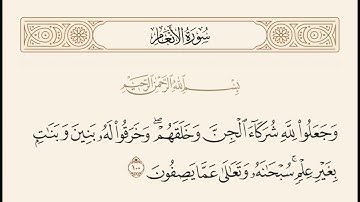 سُورَةُ الأَنْعَامِ
بِسْمِ اللَّهِ الرَّحْمَٰنِ الرَّحِيمِ
وَجَعَلُوا۟ لِلَّهِ شُرَكَآءَ ٱلْجِنَّ وَخَلَقَهُمْ ۖ وَخَرَقُوا۟ لَهُۥ بَنِينَ وَبَنَٰتٍۭ
بِغَيْرِ عِلْمٍ ۚ سُبْحَٰنَهُۥ وَتَعَٰلَىٰ عَمَّا يَصِفُونَ ١٠٠